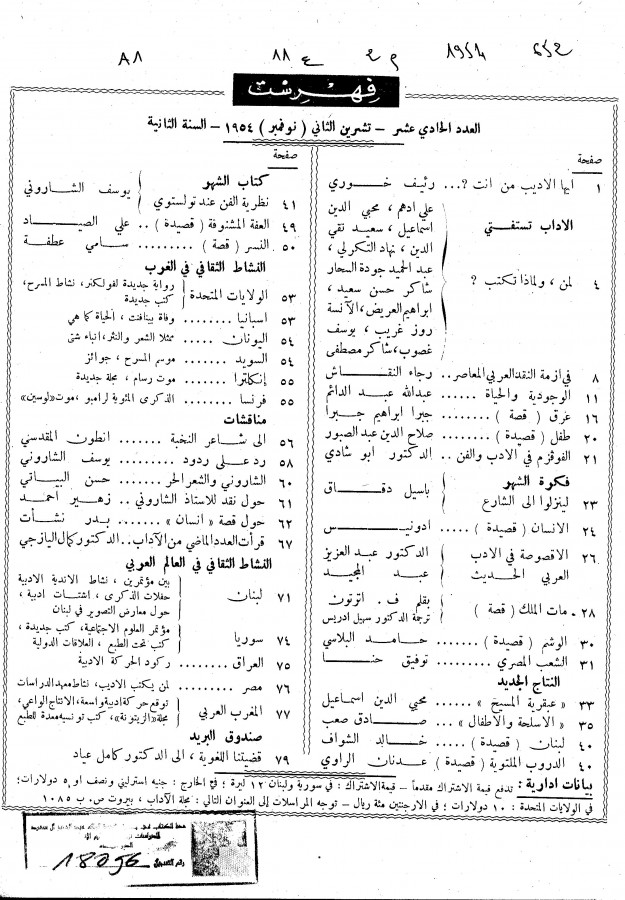 ٨٨ 1954 652
فهرست
العدد الحادي عشر – تشرين الثاني ( نوفمبر ) ١٩٥٤ – السنة الثانية
صفحة
١ ايها الاديب من انت ?... رئيف خــوري
الآداب تستفتي
٤ لمن ، ولماذا تكتب ?
علي ادهم ، محيي الدين
اسماعيل ، سعيد تقي
الدين ، نهاد التكرلي ،
عبد الحميد جودة السحار
شاكر حسن سعيد ،
ابراهيم العريض ، الآنسة
روز غريب ، يوسف
غصوب ، شاكر مصطفى
٨ في ازمة النقد العربي المعاصر.. رجاء النقـــاش
١١ الوجودية والحياة ...... عبدالله عبد الدائم
١٦ غرق ( قصة ) ........ جبرا ابراهيم جبـرا
٢٠ طفل ( قصيدة ) ..... صلاح الدين عبد الصبور
٢١ الفوڤزم في الادب والفن .. الدكتور ابو شادي
فكرة الشهر
٢٣ لينزلوا الى الشارع
باسيل دقـــاق
٢٤ الانسان ( قصيدة ) ..... ادونيـــس
٢٦ الاقصوصة في الادب
العربي الحديث
الدكتور عبد العزيز
عبد المجيد
٢٨ مات الملك ( قصة )
بقلم ف . اترتون
ترجمة الدكتور سهيل ادريس
٣٠ الوشم ( قصيدة ) ....... حـامـد البلاسي
٣١ الشعب المصري ........ توفيق حنــا
النتاج الجديد
٣٣ « عبقرية المسيح » ..... محيي الدين اسماعيل
٣٥ « الاسلحة والاطفال » ... صــادق صعب
٤٠ لبنان ( قصيدة ) ....... خـالد الشواف
٤٠ الدروب الملتوية ( قصيدة ) عـدنان الراوي
صفحة
كتاب الشهر
٤١ نظرية الفن عند تولستوي
يوسف الشاروني
٤٩ العفة المشنوقة ( قصيدة ) .. علي الصيـــاد
٥٠ النسر ( قصة ) ......... سـامي عطفـة
النشاط الثقافي في الغرب
٥٣ الولايات المتحدة
رواية جديدة لفولكنر ، نشاط المسرح ،
كتب جديدة
٥٣ اسبانيا ........ وفاة بينافنت ، الحياة كما هي
٥٤ اليونان ........ ممثلا الشعر والنثر، انباء شتى
٥٤ السويد ........ موسم المسرح ، جوائز
٥٥ إنكلترا ........ موت رسام ، مجلة جديدة
٥٥ فرنسا ........ الذكرى المئوية لرامبو ، موت «لوسين»
مناقشات
٥٦ الى شاعر النخبة ...... انطون المقدسي
٥٨ رد عـلى ردود ........ يوسف الشاروني
٦٠ الشاروني والشعر الحر ... حسن البيــاتي
٦١ حول نقد للاستاذ الشاروني .. زهـير احمـد
٦٢ حول قصة « انسان » ..... بـدر نشـأت
٦٧ قرأت العدد الماضي من الآداب .. الدكتور كمال اليازجي
النشاط الثقافي في العالم العربي
٧١ لبنان
بين مؤتمرين ، نشاط الاندية الادبية
حفلات الذكرى ، اشتات ادبية ،
حول معارض التصوير في لبنان
٧٤ سوريا
مؤتمر العلوم الاجتماعية، كتب جديدة ،
كتب تحت الطبع ، العلاقات الدولية
٧٥ العراق ........ ركود الحركة الادبية
٧٦ مصر ........ لمن يكتب الاديب ، نشاط معهد الدراسات
٧٧ المغرب العربي
توقع حركة ادبية واسعة، الانتاج الواعي،
مجلة «الزيتونة»، كتب تونسية معدة للطبع
صندوق البريد
٧٩ قضيتنا اللغوية ، الى الدكتور كامل عياد
بيانات ادارية : تدفع قيمة الاشتراك مقدماً – قيمة الاشتراك : في سورية ولبنان ١٢ ليرة ؛ في الخارج : جنيه استرليني ونصف او ٥ دولارات ؛
في الولايات المتحدة : ١٠ دولارات ؛ في الارجنتين مئة ريال – توجه المراسلات الى العنوان التالي : مجلة الآداب ، بيروت ص. ب ١٠٨٥
رقم التسجيل 18056